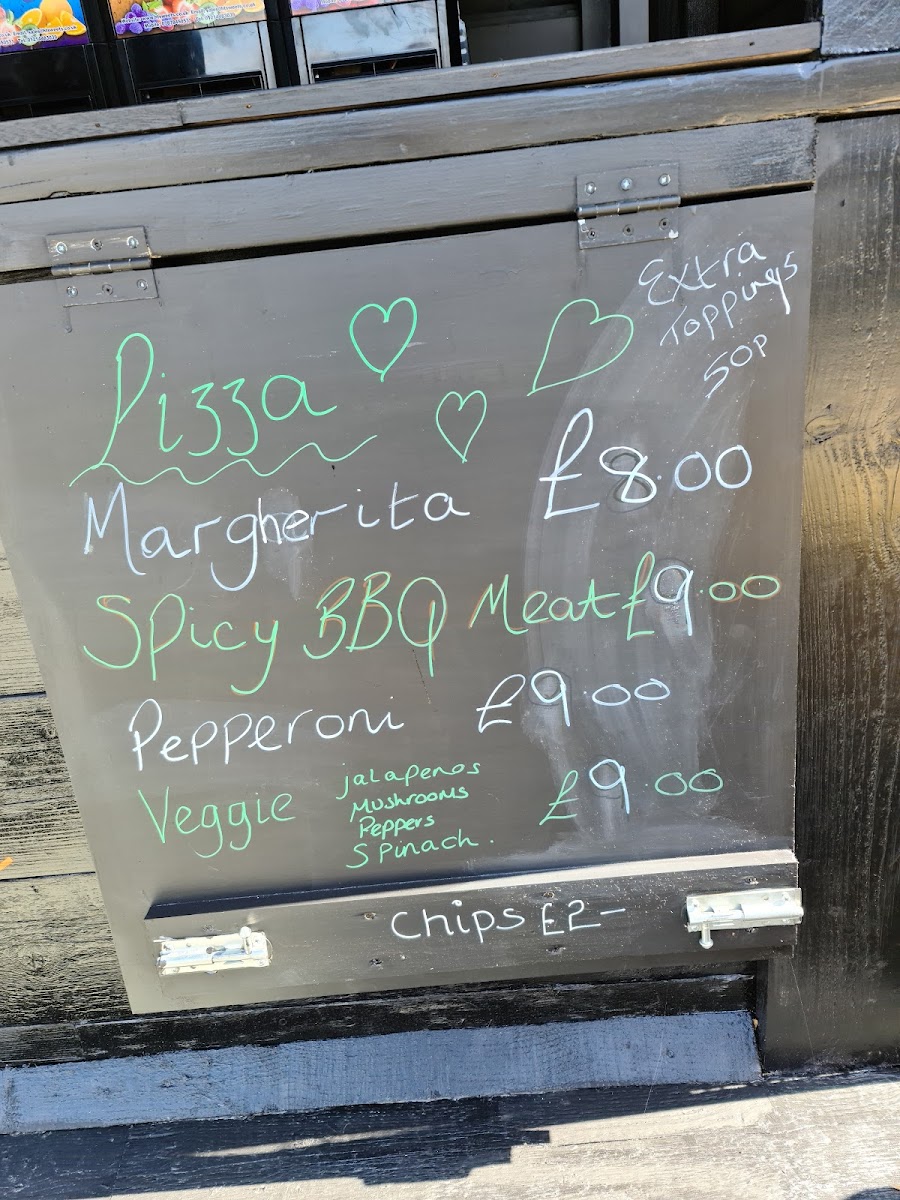 Extra
Toppings
50p
Pizza
Margherita £8.00
Spicy BBQ Meat £9.00
Pepperoni £9.00
Veggie jalapenos £9.00
Mushrooms
Peppers
Spinach.
Chips £2-